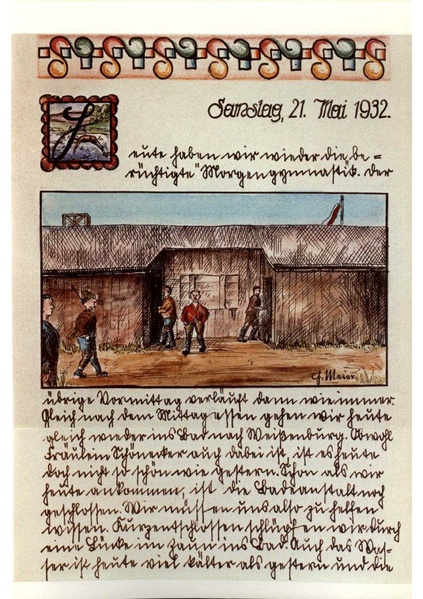 Samstag, 21. Mai 1932.
H
eute haben wir wieder die „be=
rüchtigte" Morgengymnastik. Der
F. Meier
übrige Vormittag verläuft dann wie immer.
Gleich nach dem Mittagessen gehen wir heute
gleich wieder ins Bad nach Weißenburg. Obwohl
Fräulein Schönecker auch dabei ist, ist es heute
doch nicht so schön wie gestern. Schon als wir
heute ankommen, ist die Badeanstalt noch
geschlossen. Wir müssen uns also zu helfen
wissen. Kurzentschlossen schlüpfen wir durch
eine Lücke im Zaun ins Bad. Auch das Was-
ser ist heute viel kälter als gestern und die